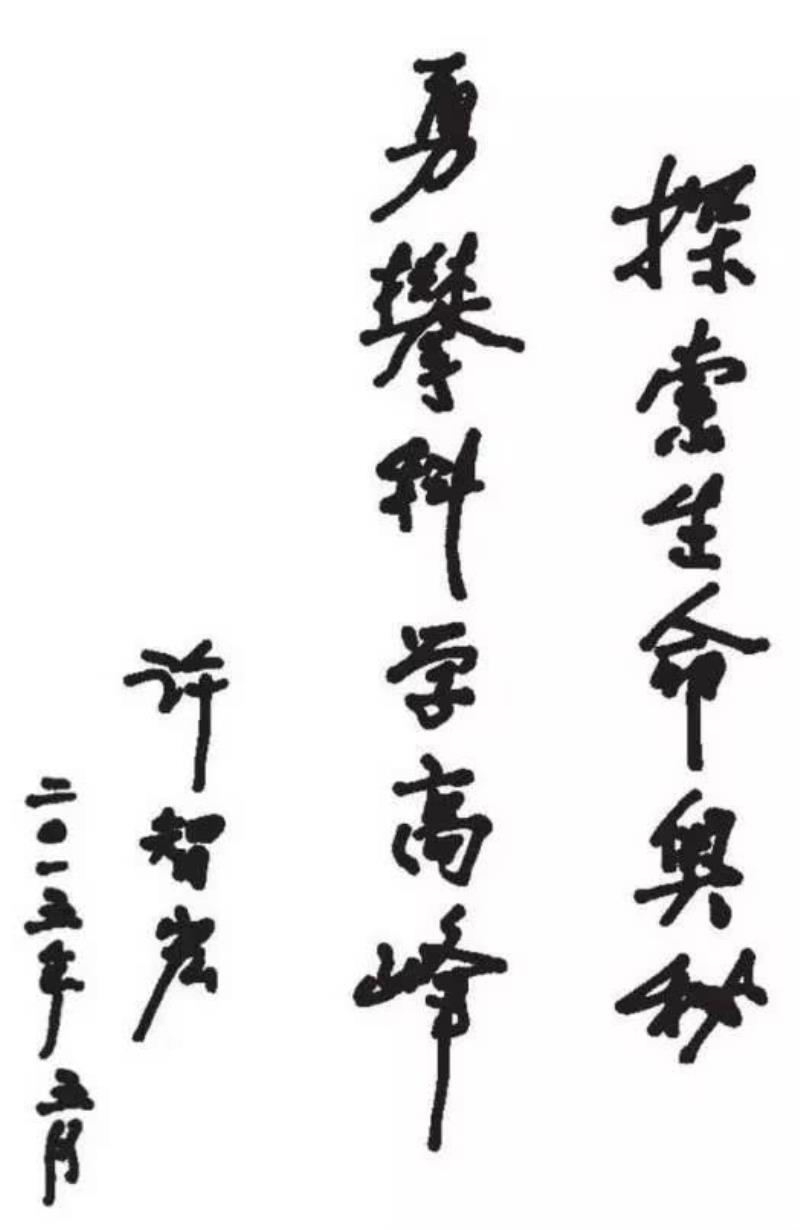 探索生命奥秘
勇攀科学高峰
许智宏
二〇一五年五月